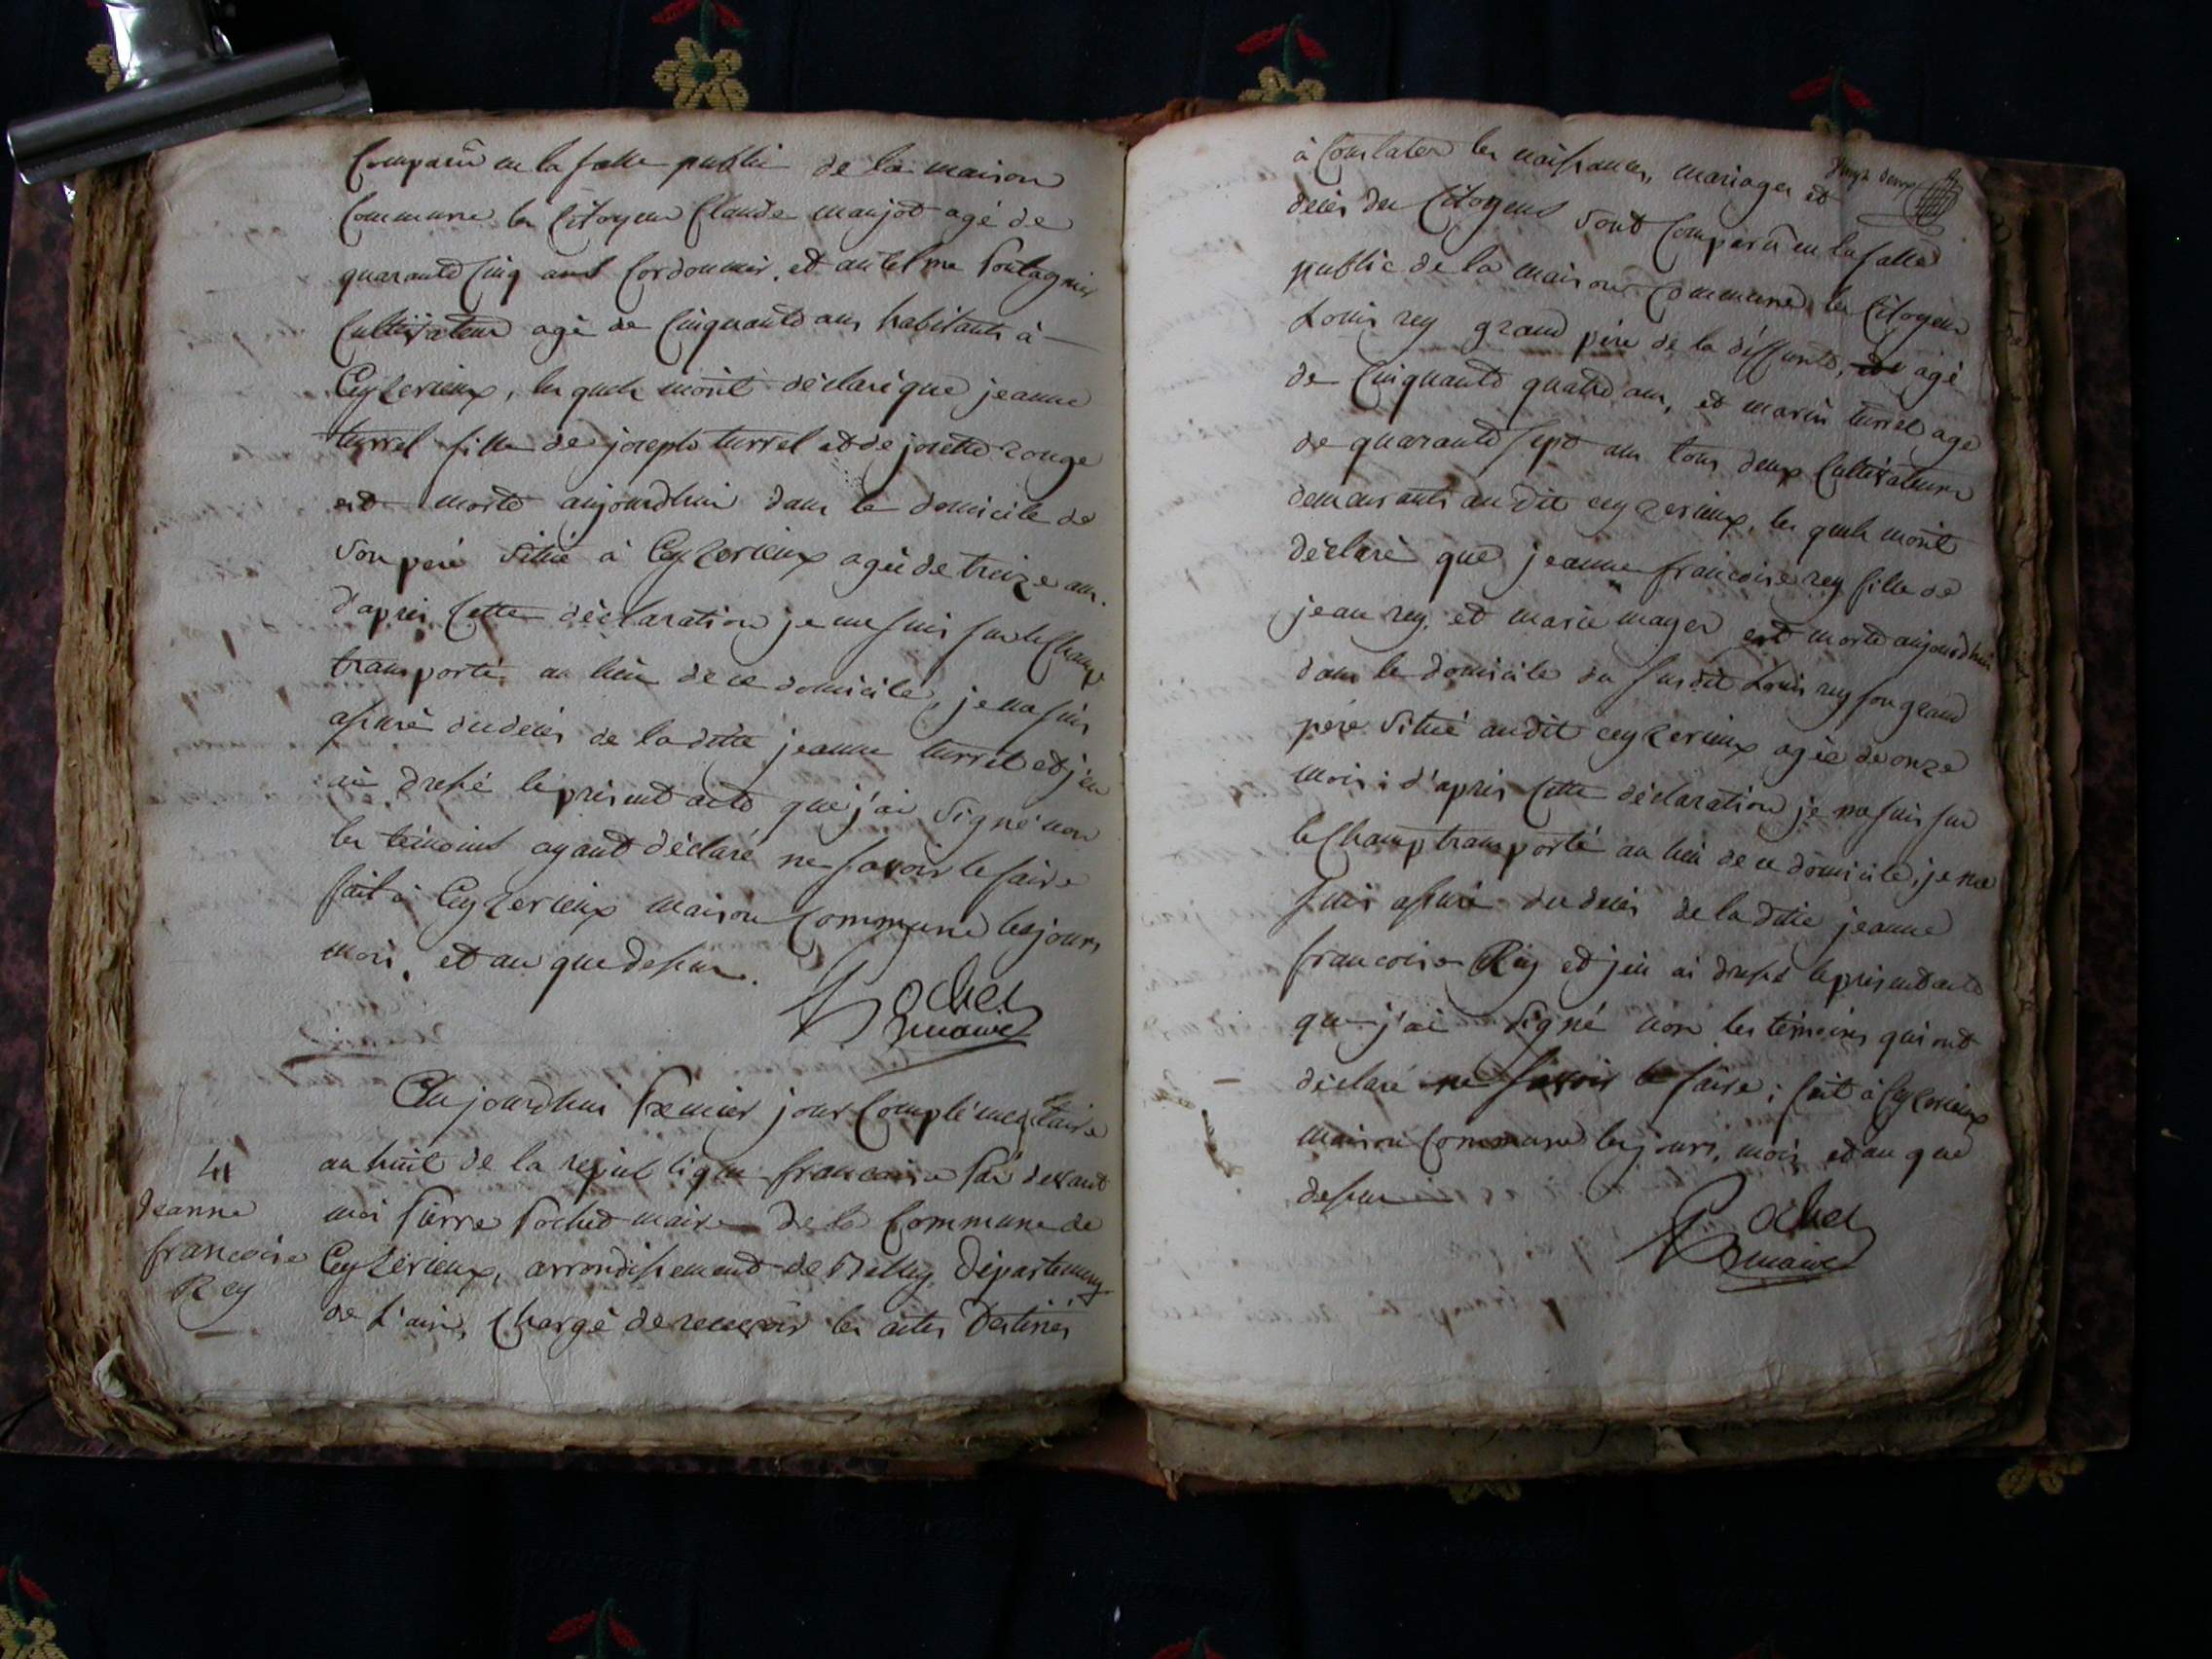 Comparû en la salle public de la maison
Commune les Citoyens Claude manjot agé de
quarante Cinq ans Cordonnier, et antelme
Cultivateur agé de Cinquante ans habitants à
Ceyzerieux, les quels mont déclaré que jeanne
turrel fille de joseph turrel et de josette rouge
est morte aujourdhui dans le domicile de
Son pere Situé à Ceyzerieux agée de treize ans.
d'apres Cette déclaration je me suis sur le Champ
transporté au lieu de ce domicile, je ma suis
assuré du deces de la ditte jeanne turrel et j'en
ai dressé le present acte que j'ai Signé non
les temoins ayant déclaré ne savoir le faire
fait à Ceyzerieux maison Commune les jours,
mois, et an que dessus.
Pochet
maire
Aujourdhui Premier jour Complémentaire
an huit de la republique francaise Par devant
moi Pierre Pochet maire de la Commune de
Ceyzerieux, arrondissement de Belley, Departement
de L'ain, Chargé de recevoir les actes Destinés
41
Jeanne
francoise
Rey
à Constater les naissances, mariages et
deces des Citoyens Sont Comparû en la salle
public de la maison Commune les Citoyens
Louis rey grand père de la deffunte, agé
de Cinquante quatre ans, et marin turrel agé
de quarante Sept ans tous deux Cultivateurs
demeurants au dit ceyzerieux, les quels mont
déclaré que jeanne francoise rey fille de
jean rey, et marie mayer est morte aujourdhui
dans le domicile du susdit Louis rey son grand
pere Situé au dit ceyzerieux agée de onze
mois: d'apres Cette déclaration je ma suis sur
le Champ transporté au lieu de ce domicile, je ma
suis assuré du deces de la ditte jeanne
francoise Rey et j'en ai dressé le present acte
que j'ai Signé non les témoins qui ont
déclaré ne savoir le faire; fait à Ceyzerieux
maison Commune les jours, mois et an que
dessus
Pochet
maire